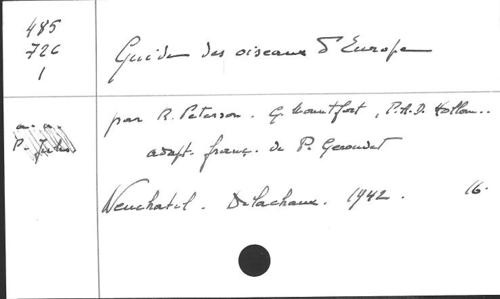 485
726
1
Guide des oiseaux d'Europe
par R. Peterson. G. Mountfort, P.A.D. Hollom..
adapt. franç. de P. Geroudet
a. a.
P.
Neuchatel. Delachaux. 1942. 16.